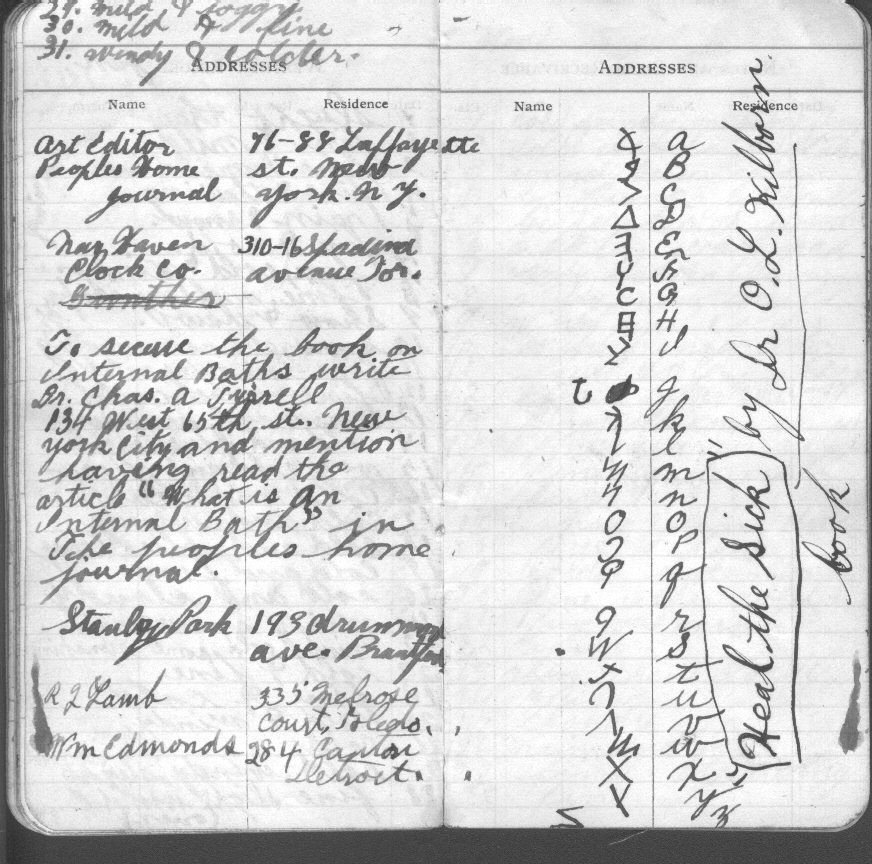 29. mild & foggy
30. mild & fine
31. windy & colder.
ADDRESSES
Name Residence
Art Editor 76-88 Laffayette
Peoples Home st. New
journal york. N Y.
Nay Haven 310-16 Spadina
Clock Co. avenue Tor.
To secure the book on
internal Baths write
Dr. Chas. A Tyrrell
134 West 65th st. New
york City and mention
having read the
article "What is an
Internal Bath" in
The peoples home
journal.
Stanley Park 193 drummond
ave. Brantford
R J Lamb 335 Melrose
court,
Wm Edmonds 284
Detroit.
ADDRESSES
Name Residence
a
B
C
D
E
F
G
H
I
J
k
l
m
n
O
P
q
r
S
t
u
v
w
x
y
z
"Heal the Sick" by Dr O. L. Kilborn
book